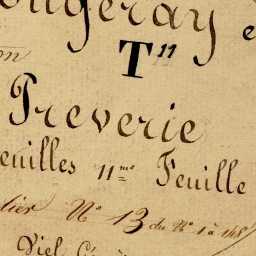 ougeray e
on
T"
Preverie
euilles 11me Feuille
lier No 13 du No 1 à 148
Viel